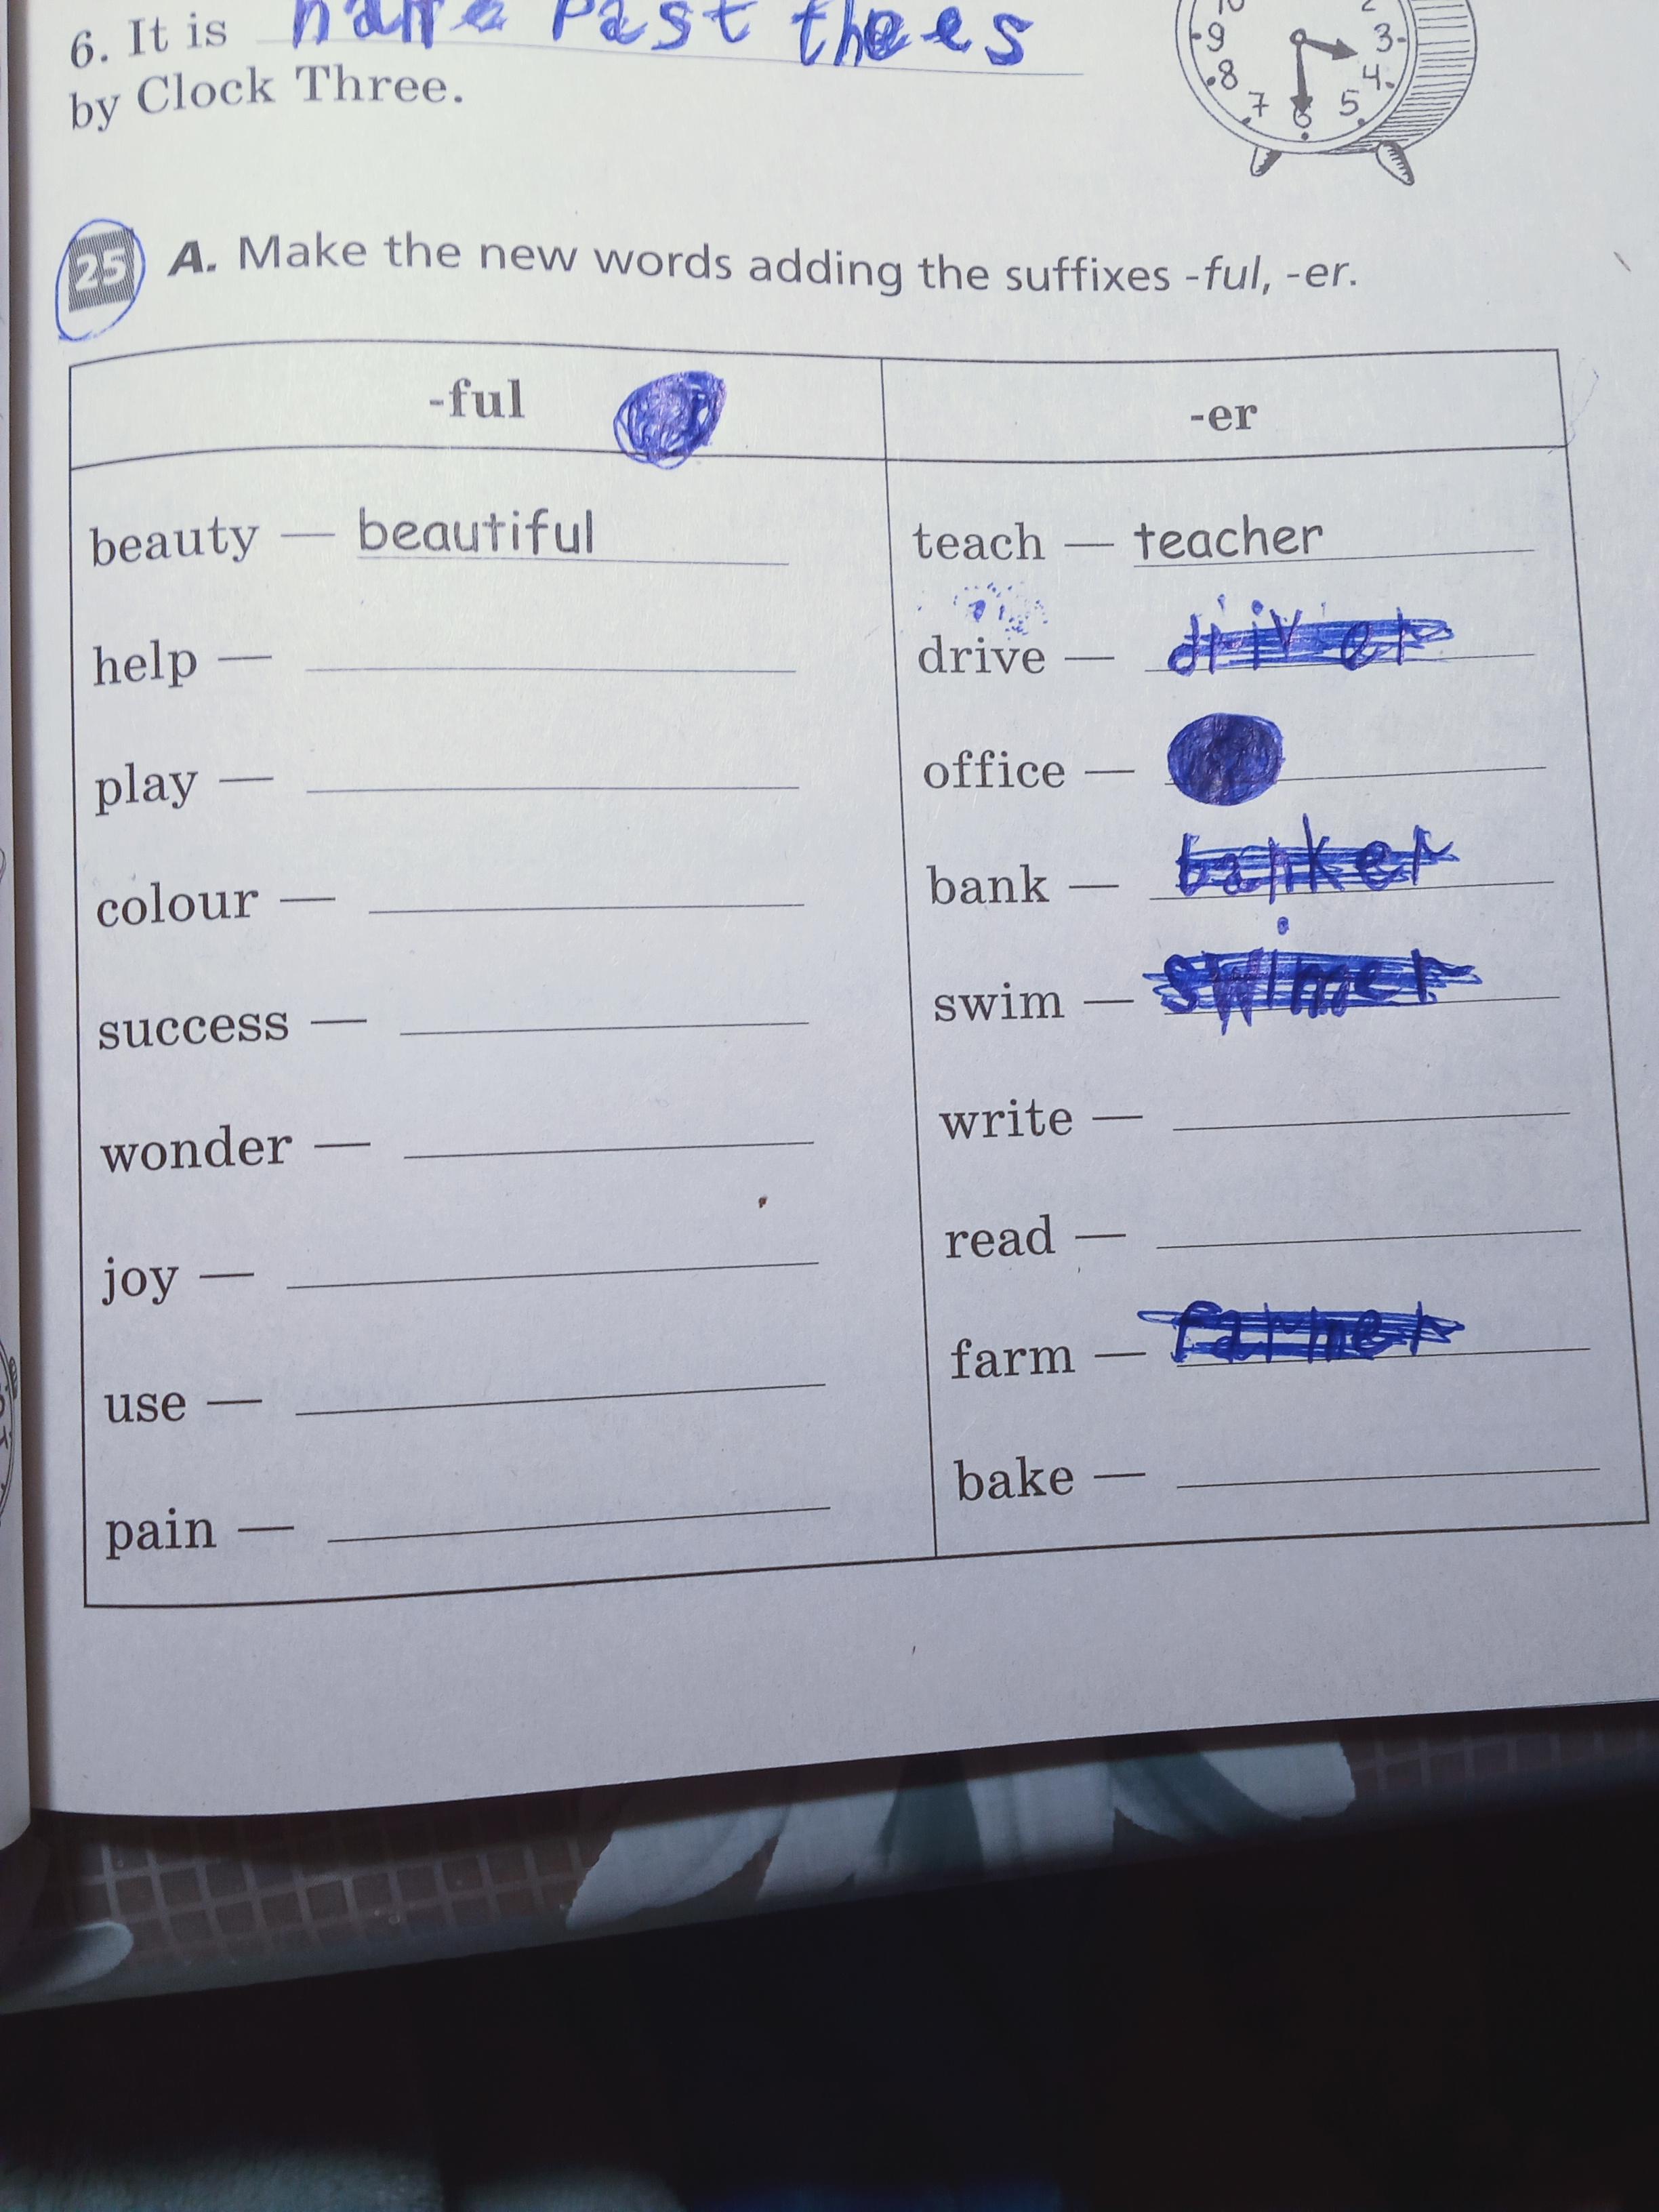 6. It is half past thees
by Clock Three.
10 2
9 3
8 4
7 6 5
25 A. Make the new words adding the suffixes -ful, -er.
-ful -er
beauty — beautiful teach — teacher
help — drive — driver
play — office —
colour — bank — banker
success — swim — swimer
wonder — write —
joy — read —
use — farm — farmer
pain — bake —